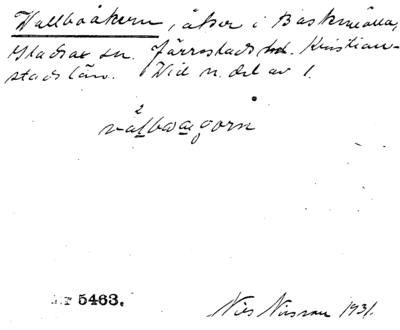 Vallboåkern, åker i Baskemölla,
Gladsax sn. Järrestads hd. Kristian-
stads län. Vid n. del av 1.
5463.
Nils Nilsson 1931.